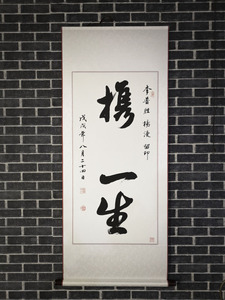 李晋胜 杨洁 留印
携一生
戊戌年八月二十四日